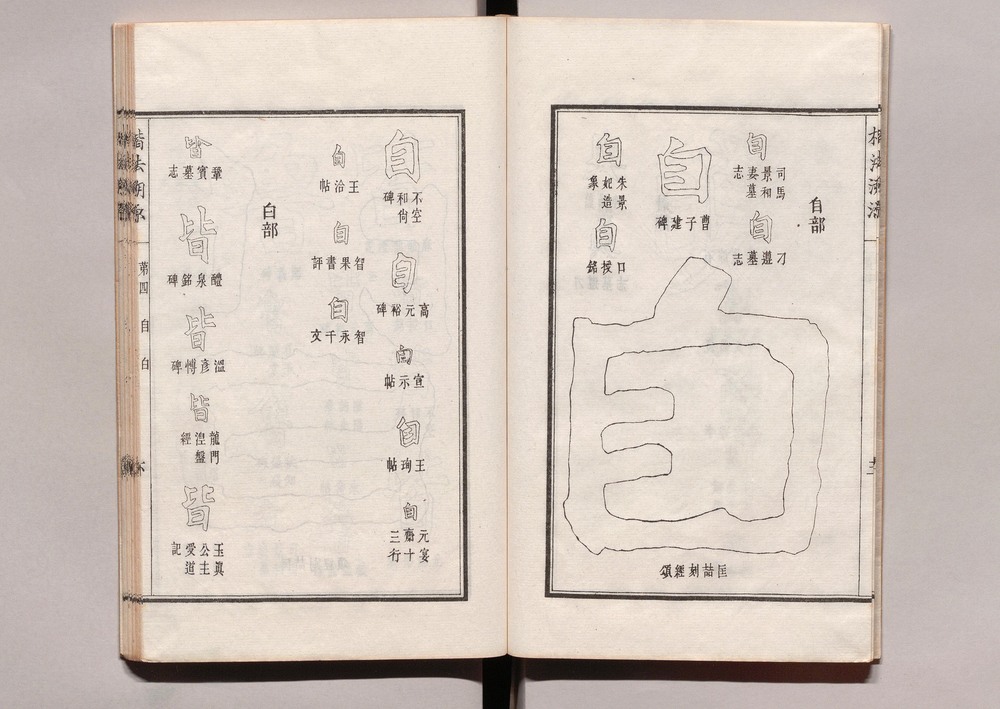 自部
自
司馬景和妻墓志
自
刁遵墓志
自
曹子建碑
自
朱景妃造象
自
口拔銘
自
匡喆刻經頌
自
不空和尚碑
自
高元裕碑
自
宣示帖
自
王珣帖
自
元宴齋三十行
自
王洽帖
自
智果書評
自
智永千文
白部
皆
鞏賓墓志
皆
醴泉銘碑
皆
溫彥博碑
皆
龍門涅盤經
皆
玉眞公主受道記
楷法溯源
第四
自
白